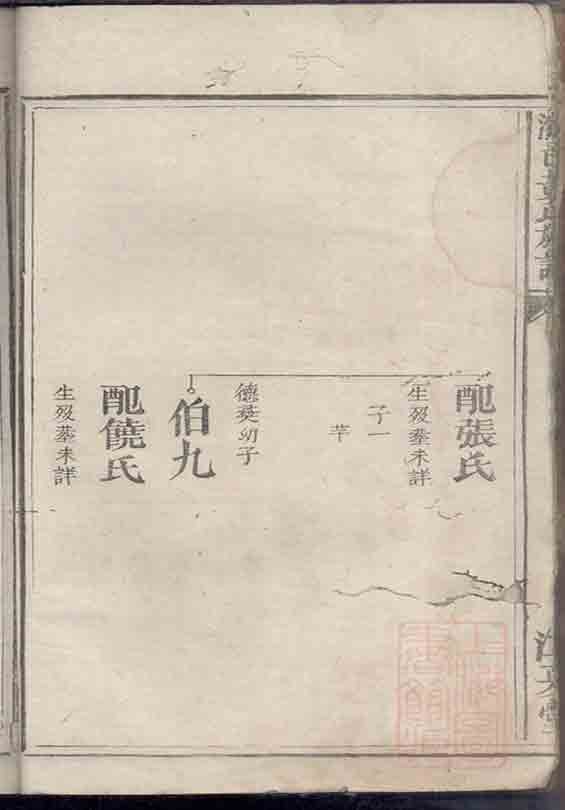 配張氏
生殁墓未詳
子一
芊
德英幼子
伯九
配饒氏
生殁墓未詳